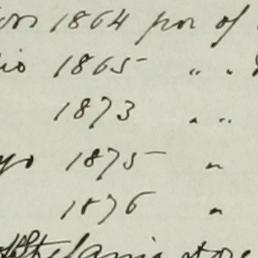 1864 por of
io 1865 " "
1873 " "
yo 1875 "
1876 "